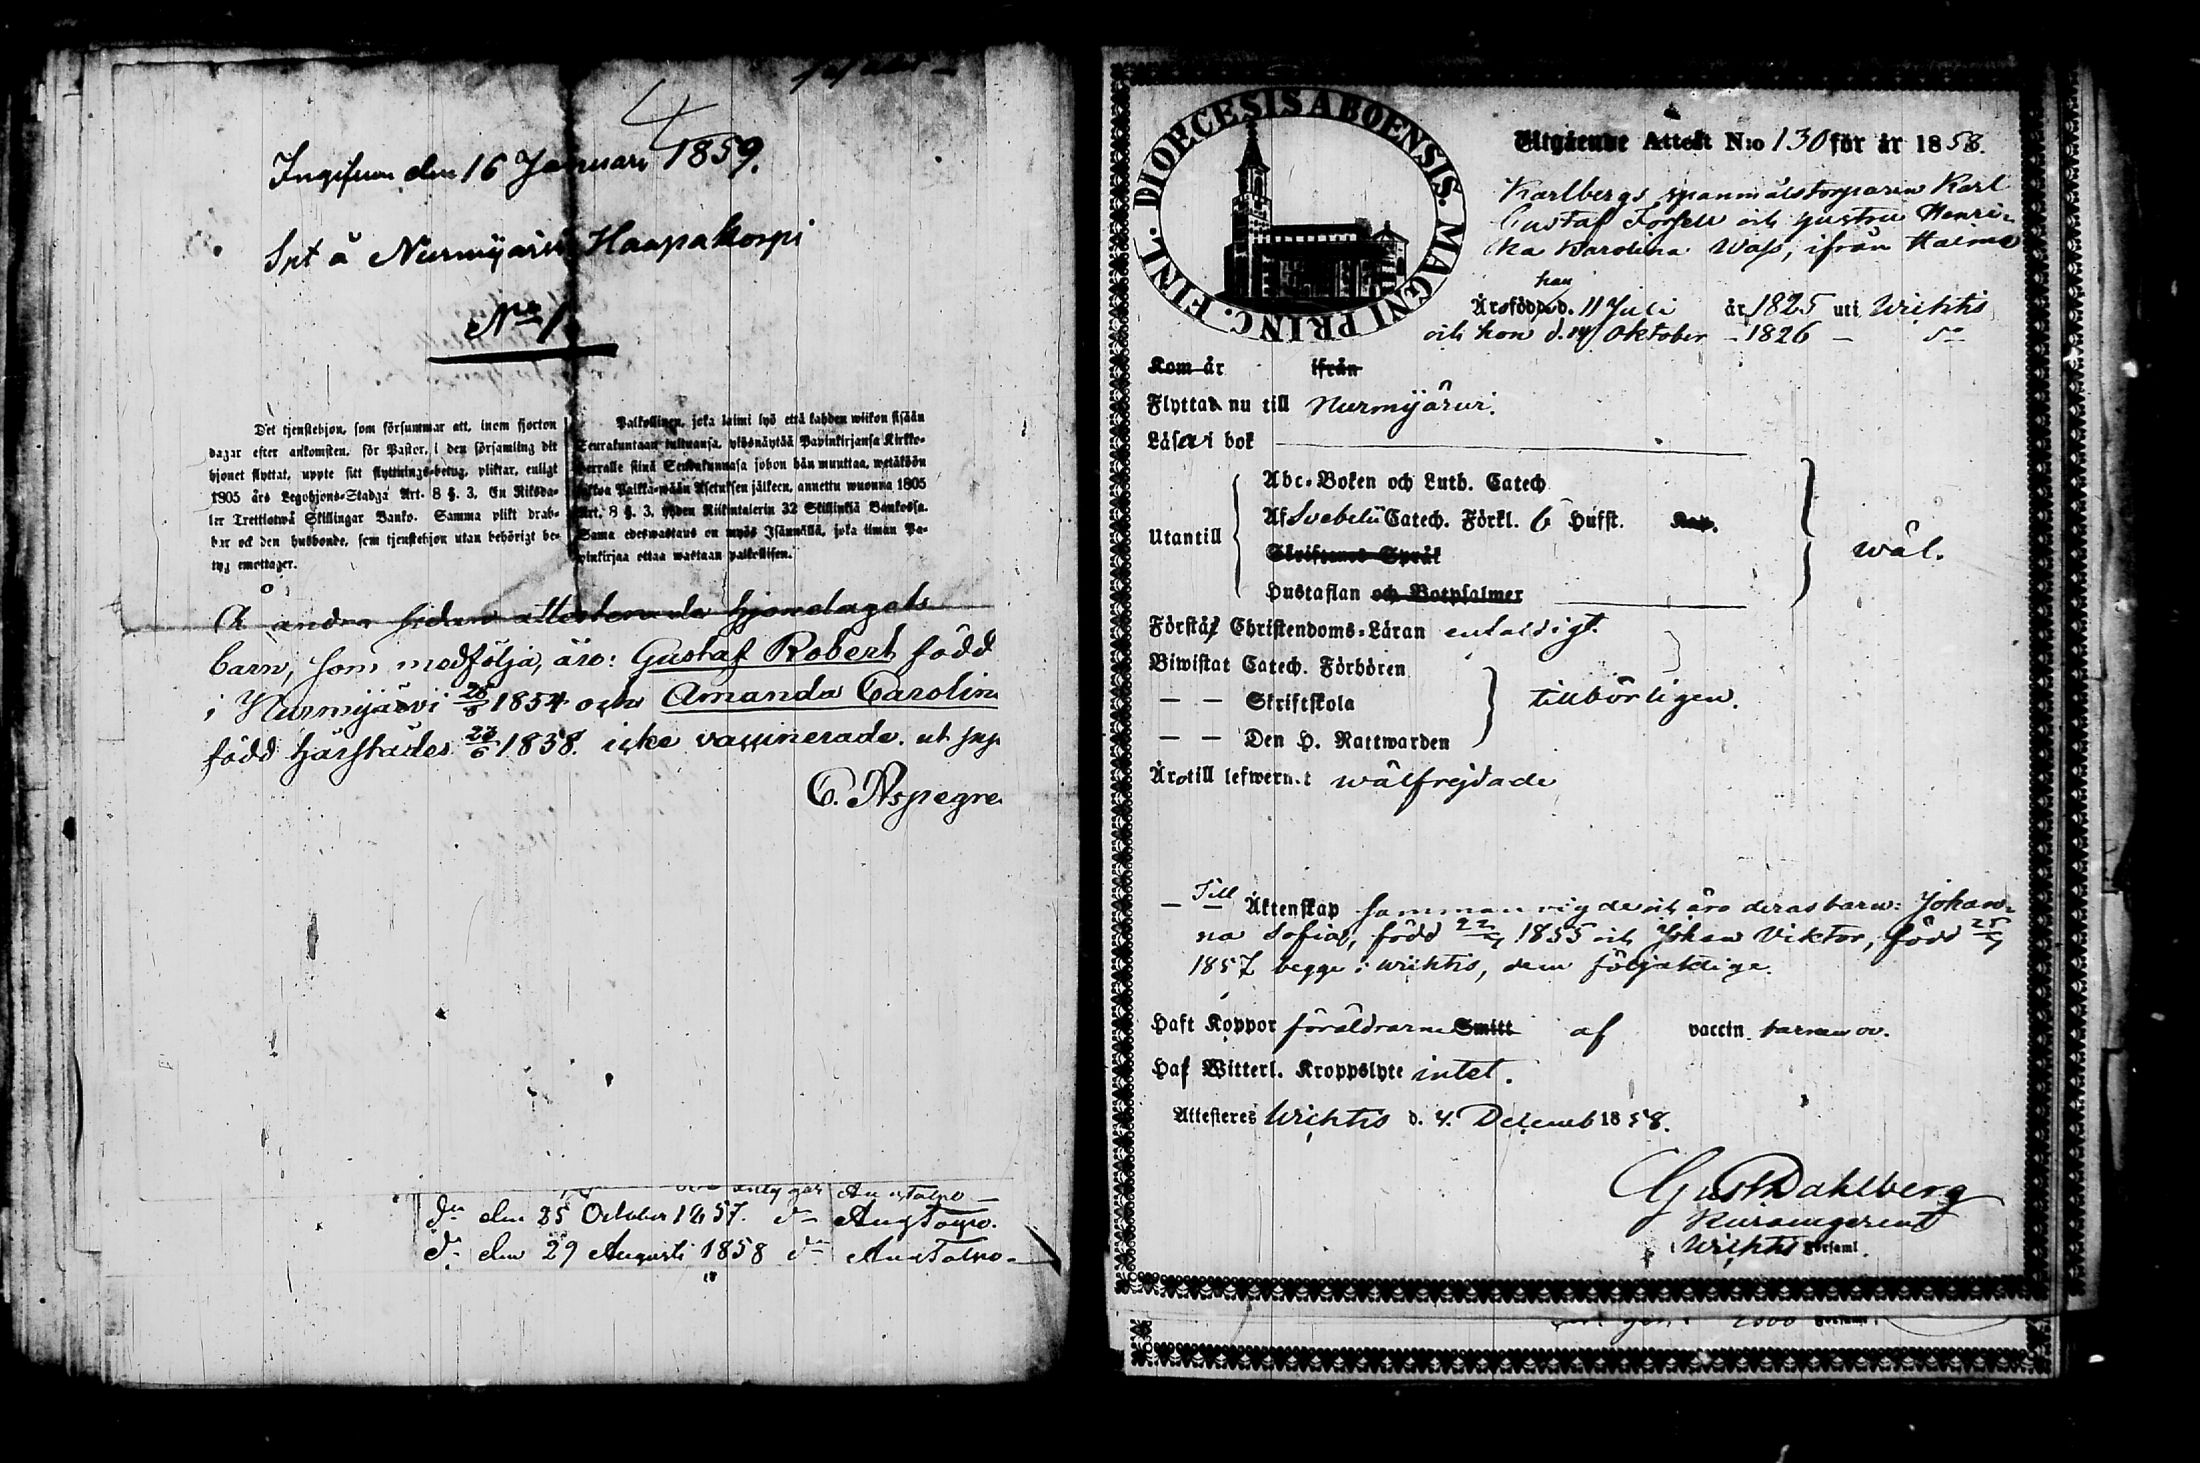 4
Ingifven den 16 Januari 1859.
Spt å Nurmijärvi Haapakorpi
No 1
Det tjenstehjon, som försummar att, inom fjorton
dagar efter ankomsten, för Pastor, i den församling dit
hjonet flyttat, uppte sitt flyttnings-betyg, pliktar, enligt
1805 års Legohjons-Stadga Art. 8 §. 3. En Riksda-
ler Trettiotwå Skillingar Banko. Samma plikt drab-
bar ock den husbonde, som tjenstehjon utan behörigt be-
tyg emottager.
Palkollinen, joka laimi lyö että kahden wiikon sisään
Seurakuntaan tultuansa, ylösnäytää Papinkirjansa Kirkko-
herralle siinä Seurakunnasa johon hän muuttaa, wetäköön
sakkoa Palkka-wään Asetuksen jälkeen, annettu wuonna 1805
Art. 8 §. 3. yhden Riikintalerin 32 Skillinkiä Bankossa.
Sama edeswastaus on myös Isännällä, joka ilman Pa-
pinkirjaa ottaa wastaan palkollisen.
Å andra sidan attesterade hjonelagets
barn, som medfölja, äro: Gustaf Robert född
i Nurmijärvi 1854 och Amanda Carolin
född härstädes 1858. icke vaccinerade. ut
C. Aspegre
do den 25 October 1857. do
do den 29 Augusti 1858 do
DIOECESIS ABOENSIS. MAGNI PRINC. FINL.
Utgående Attest N:o 130 för år 1858.
Karlbergs spanmålstorparen Karl
Gustaf Forsell och hustru Henri-
ka Karolina Wass, ifrån Haimo
han
Äro född d. 11 Juli år 1825 uti Wichtis
och hon d. 14 Oktober - 1826 - do
Kom år ifrån
Flytta nu till Nurmijärvi.
Läsa i bok
Utantill
Abc-Boken och Luth. Catech
Af Svebelii Catech. Förkl. 6 Hufst. Kap.
Skriftenes Språk
Hustaflan och Botpsalmer
wäl.
Förstå Christendoms-Läran enfaldigt.
Biwistat Catech. Förhören
— — Skriftskola
— — Den H. Nattwarden
tillbörligen.
Äro till lefwernet wälfrejdade
— Till Äktenskap sammanvigde och äro deras barn: Johan-
na Sofia, född 1855 och Johan Viktor, född
1857 begge i Wichtis, dem följaktige.
Haft Koppor föräldrarne Smitt af vaccin barnen ov.
Haf Witterl. Kroppslyte intet.
Attesteres Wichtis d. 4. Decemb 1858.
Gust Dahlberg
Wichtis Församl.